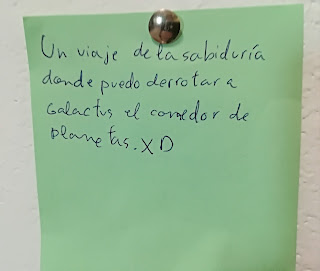 Un viaje de la sabiduría
donde puedo derrotar a
Galactus el comedor de
planetas. XD